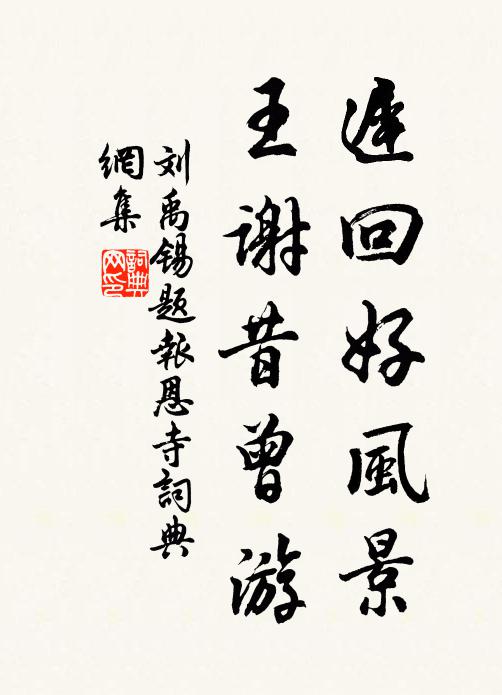 遲回好風景
王謝昔曾游
刘禹锡题報恩寺詞典
網集
詞典
网印